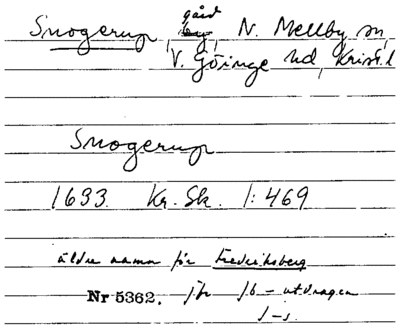 gård
Snogerup, by, N. Mellby sn,
V. Göinge hd, Krist. l
Snogerup
1633 Kr. Sk. 1: 469
äldre namn för Fredriksberg
Nr 5362. jfr jb-utdragen